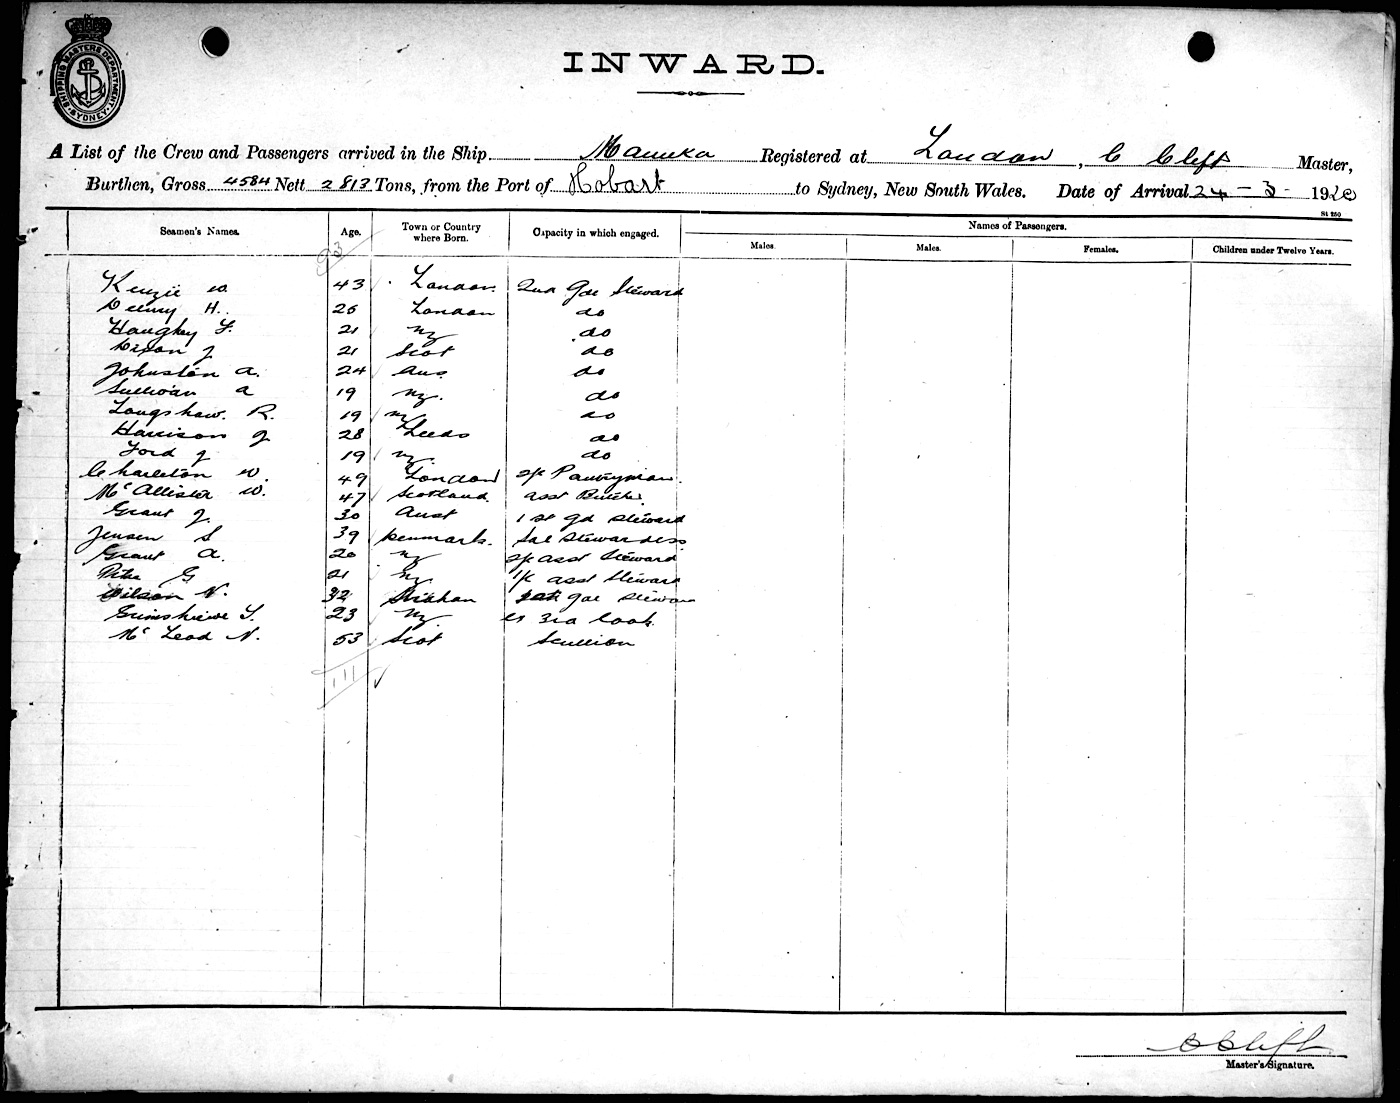 SHIPPING MASTERS DEPARTMENT SYDNEY
INWARD.
A List of the Crew and Passengers arrived in the Ship Manuka Registered at London, C Clift Master,
Burthen, Gross 4584 Nett 2813 Tons, from the Port of Hobart to Sydney, New South Wales. Date of Arrival 24-3-1920
St 250
Seamen's Names. Age. Town or Country where Born. Capacity in which engaged. Names of Passengers.
Males. Males. Females. Children under Twelve Years.
93
Kenzie W. 43 London. 2nd Gde Steward
H. London do
Haughey F. 21 NZ do
Dixon J 21 Scot do
Johnston A. 24 Aus. do
Sullivan A 19 NZ. do
Longshaw. R. 19 NZ do
Harrison J 28 Leeds do
Ford J 19 NZ. do
Charleton W. 49 London Pantryman.
McAllister W. 47 Scotland. asst Butcher
Grant J. 30 Aust 1st gd Steward
Jensen S 39 Denmark. Stewardess
Grant A. 20 NZ asst Steward
G 21 NZ asst Steward
Wilson N. 32 gde Steward
S. 23 NZ. 3rd Cook.
McLeod N. 53 Scot Scullion
111
C Clift
Master's Signature.